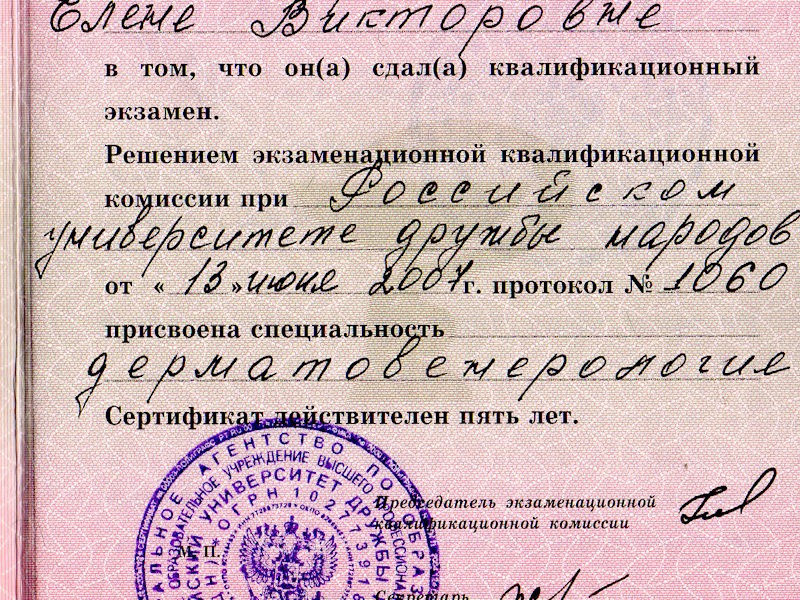 Елене Викторовне
в том, что он(а) сдал(а) квалификационный
экзамен.
Решением экзаменационной квалификационной
комиссии при Российском
университете дружбы народов
от « 13 » июня 2007г. протокол № 1060
присвоена специальность
дерматовенерология
Сертификат действителен пять лет.
АГЕНТСТВО ПО ОБРАЗ
ОБРАЗОВАТЕЛЬНОЕ УЧРЕЖДЕНИЕ ВЫСШЕГО
УНИВЕРСИТЕТ ДРУЖБЫ
ОГРН 102773918
Председатель экзаменационной
квалификационной комиссии
М. П.
Секретарь